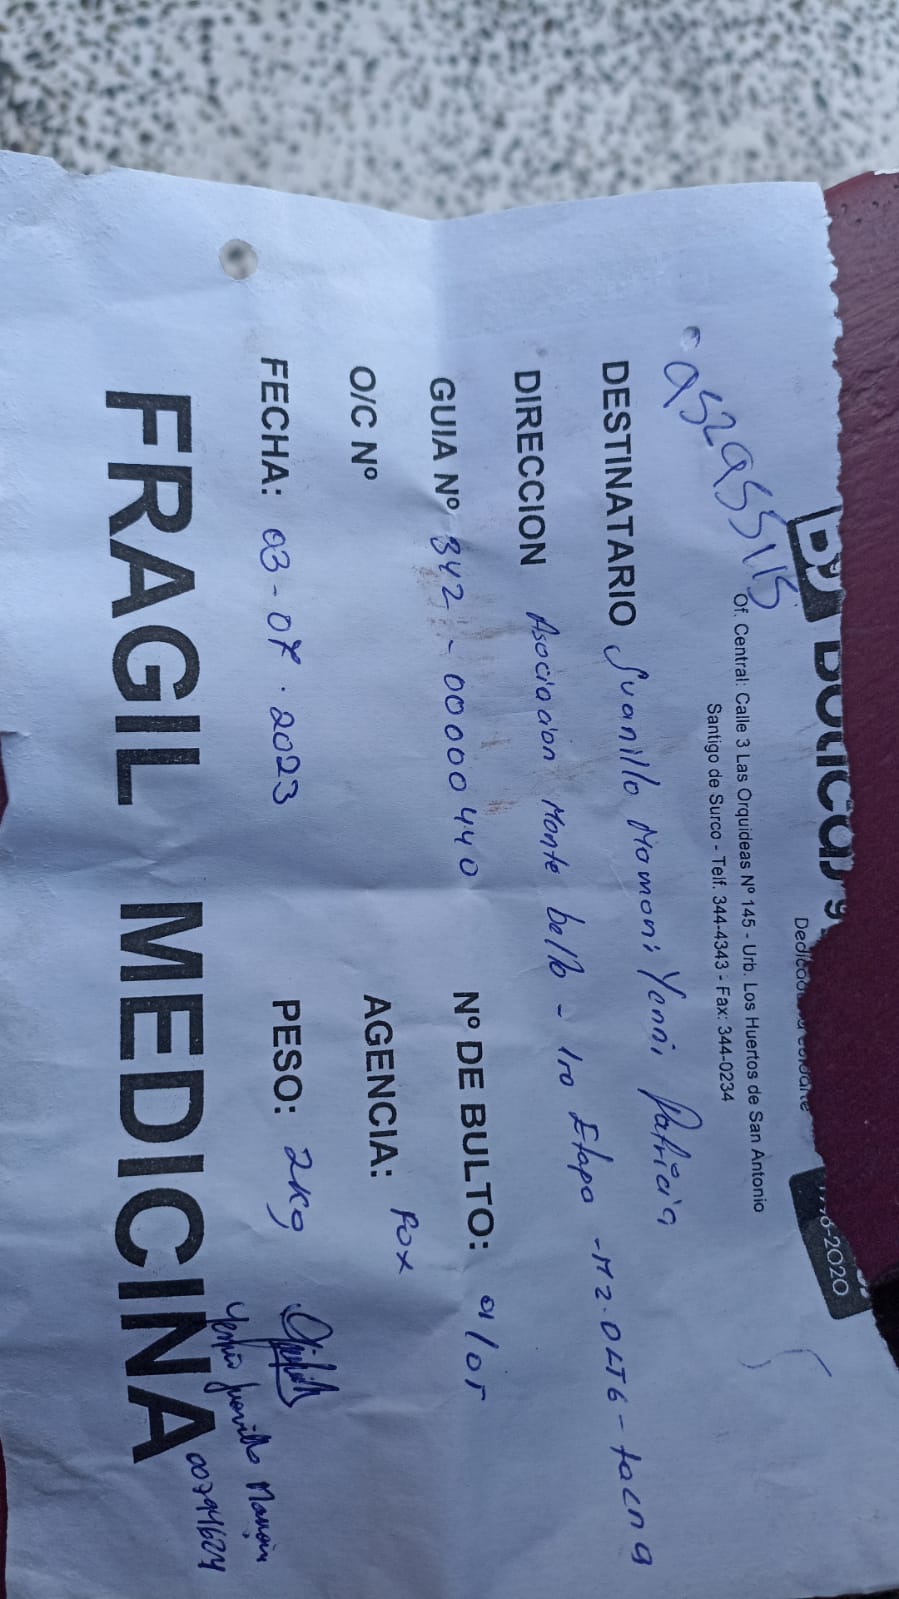 Boticas
Dedicados a cuidarte
1998-2020
Of. Central: Calle 3 Las Orquideas Nº 145 - Urb. Los Huertos de San Antonio
Santigo de Surco - Telf. 344-4343 - Fax: 344-0234
DESTINATARIO Juanillo Mamani Yenni Patricia
DIRECCION Asociacion Monte bello - 1ra Etapa - MZ. O LT 6 - tacna
GUIA Nº 342 - 00000440 Nº DE BULTO: 01/01
O/C Nº AGENCIA: Pox
FECHA: 03 - 07 . 2023 PESO: 2Kg
FRAGIL MEDICINA